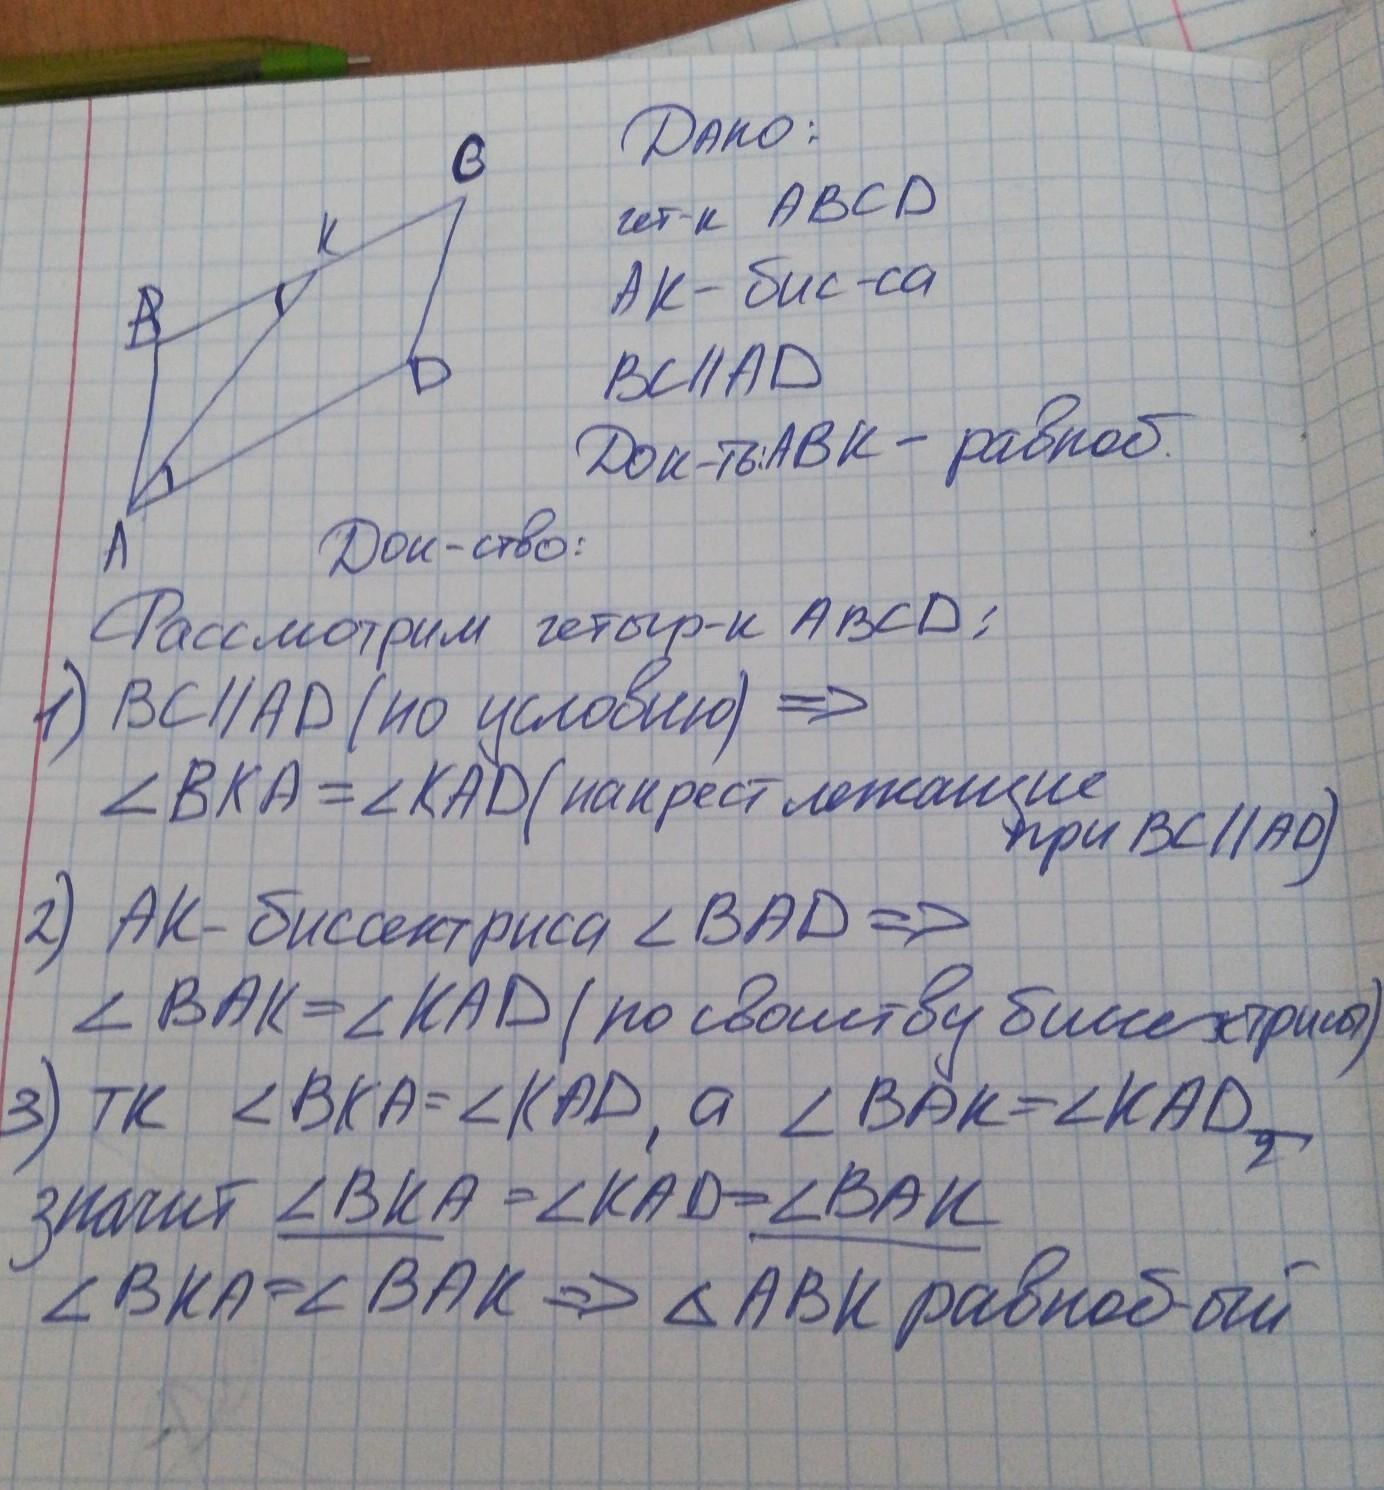 В
К
В
D
А
Дано:
чет-к ABCD
АК - бис-са
BC//AD
Док-ть: ABK - равноб.
Док-ство:
Рассмотрим четыр-к ABCD:
1) BC//AD (по условию) =>
∠BKA = ∠KAD (накрест лежащие
при BC//AD)
2) АК - биссектриса ∠BAD =>
∠BAK = ∠KAD (по свойству биссектрисы)
3) тк ∠BKA = ∠KAD, а ∠BAK = ∠KAD,
значит ∠BKA = ∠KAD = ∠BAK
∠BKA = ∠BAK => △ABK равноб-ый